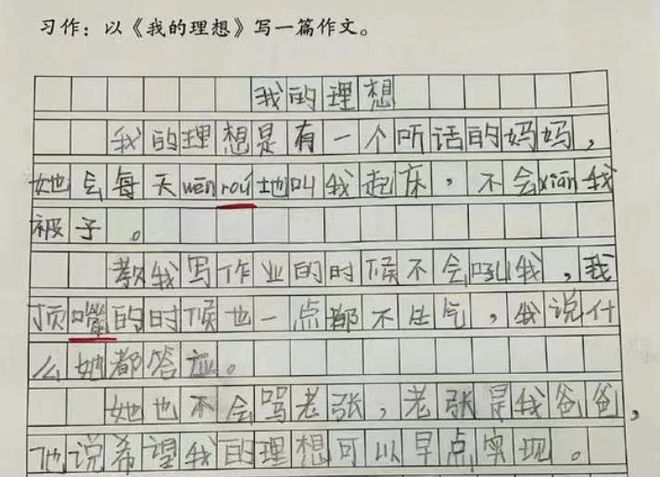 习作：以《我的理想》写一篇作文。
我的理想
我的理想是有一个听话的妈妈，
她会每天wēnroú地叫我起床，不会xiān我
被子。
教我写作业的时候不会吼我，我
顶嘴的时候也一点都不生气，我说什
么她都答应。
她也不会骂老张，老张是我爸爸，
他说希望我的理想可以早点实现。